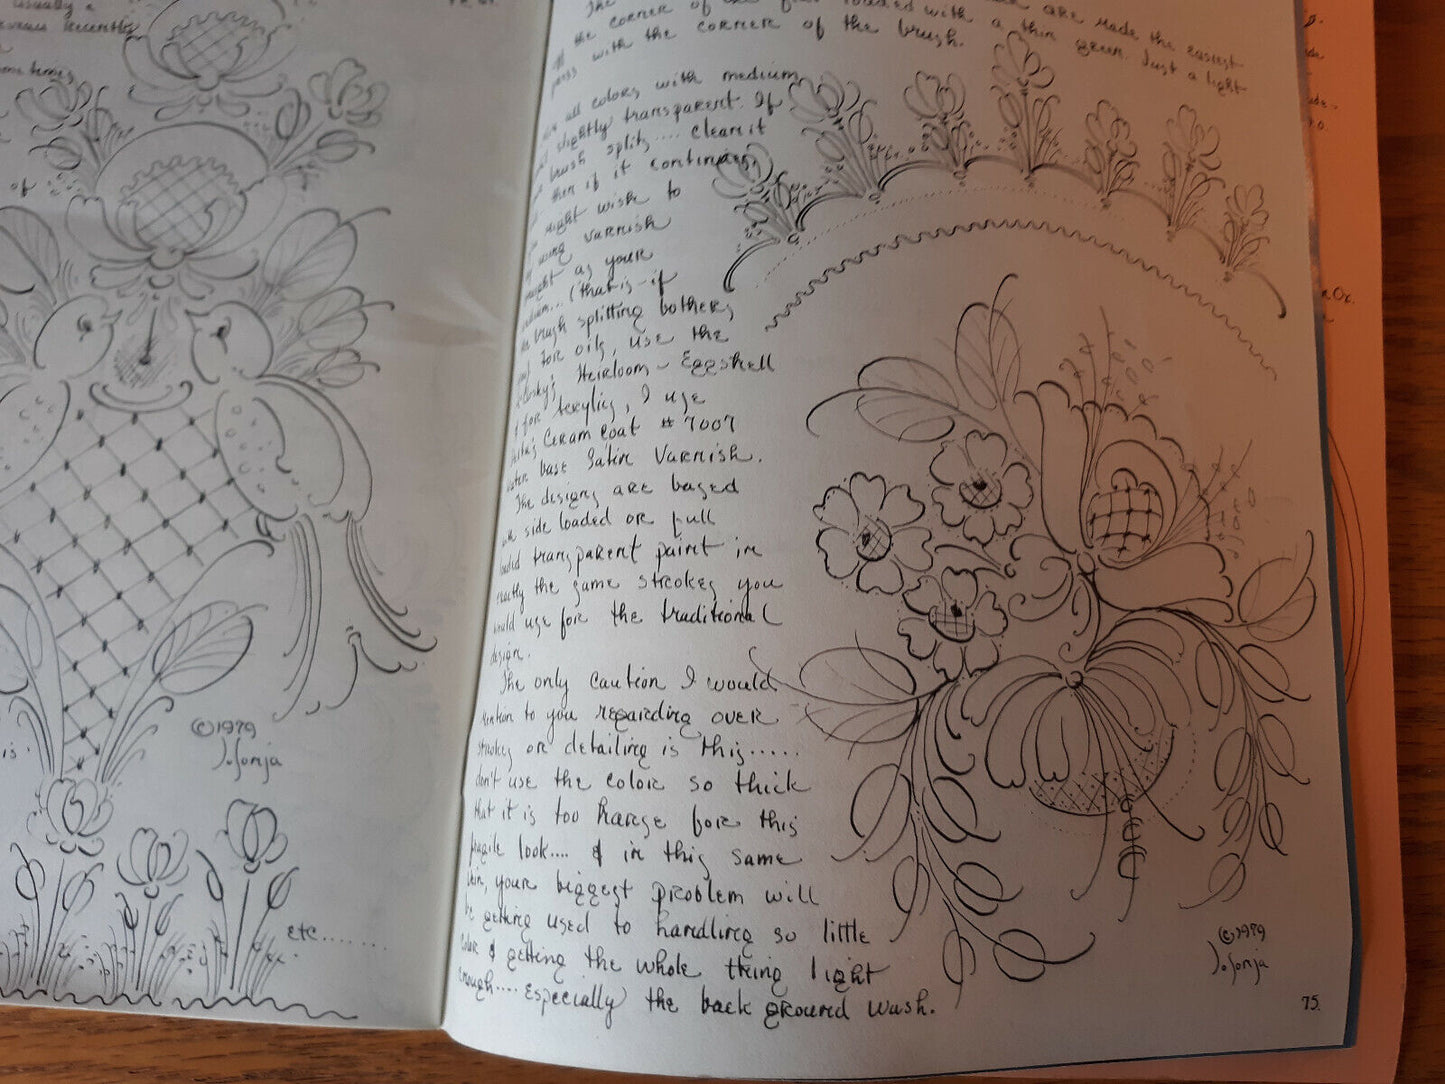 usually a
recently
some times
of
is.
©1979
Jo Sonja
etc........
The
are made the easiest
the corner of the flat loaded with a thin green. Just a light
press with the corner of the brush.
all colors with medium
slightly transparent. If
brush splits.... clean it
then if it continues,
might wish to
using varnish
as your
(that is - if
brush splitting bothers
For oils, use the
Heirloom - Eggshell
for Acrylics, I use
Ceram Coat # 7007
water base Satin Varnish.
The designs are based
on side loaded or full
loaded transparent paint in
exactly the same strokes you
would use for the traditional
design.
The only caution I would
mention to you regarding over
strokes or detailing is this.....
don't use the color so thick
that it is too harsh for this
fragile look.... & in this same
vein, your biggest problem will
be getting used to handling so little
color & getting the whole thing light
enough.... Especially the back ground wash.
©1979
Jo Sonja
75.